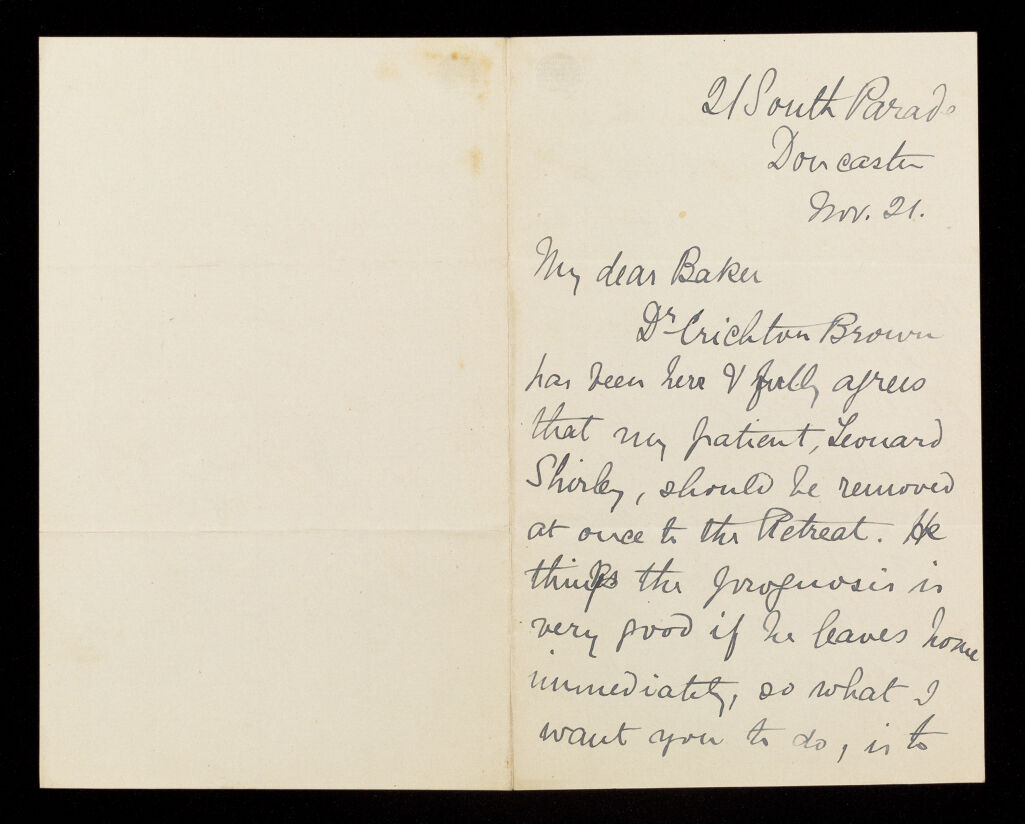 21 South Parade
Doncaster
Nov. 21.
My dear Baker
Dr Crichton Brown
has been here & fully agrees
that my patient, Leonard
Shirley, should be removed
at once to the Retreat. He
thinks the prognosis is
very good if he leaves home
immediately, so what I
want you to do, is to